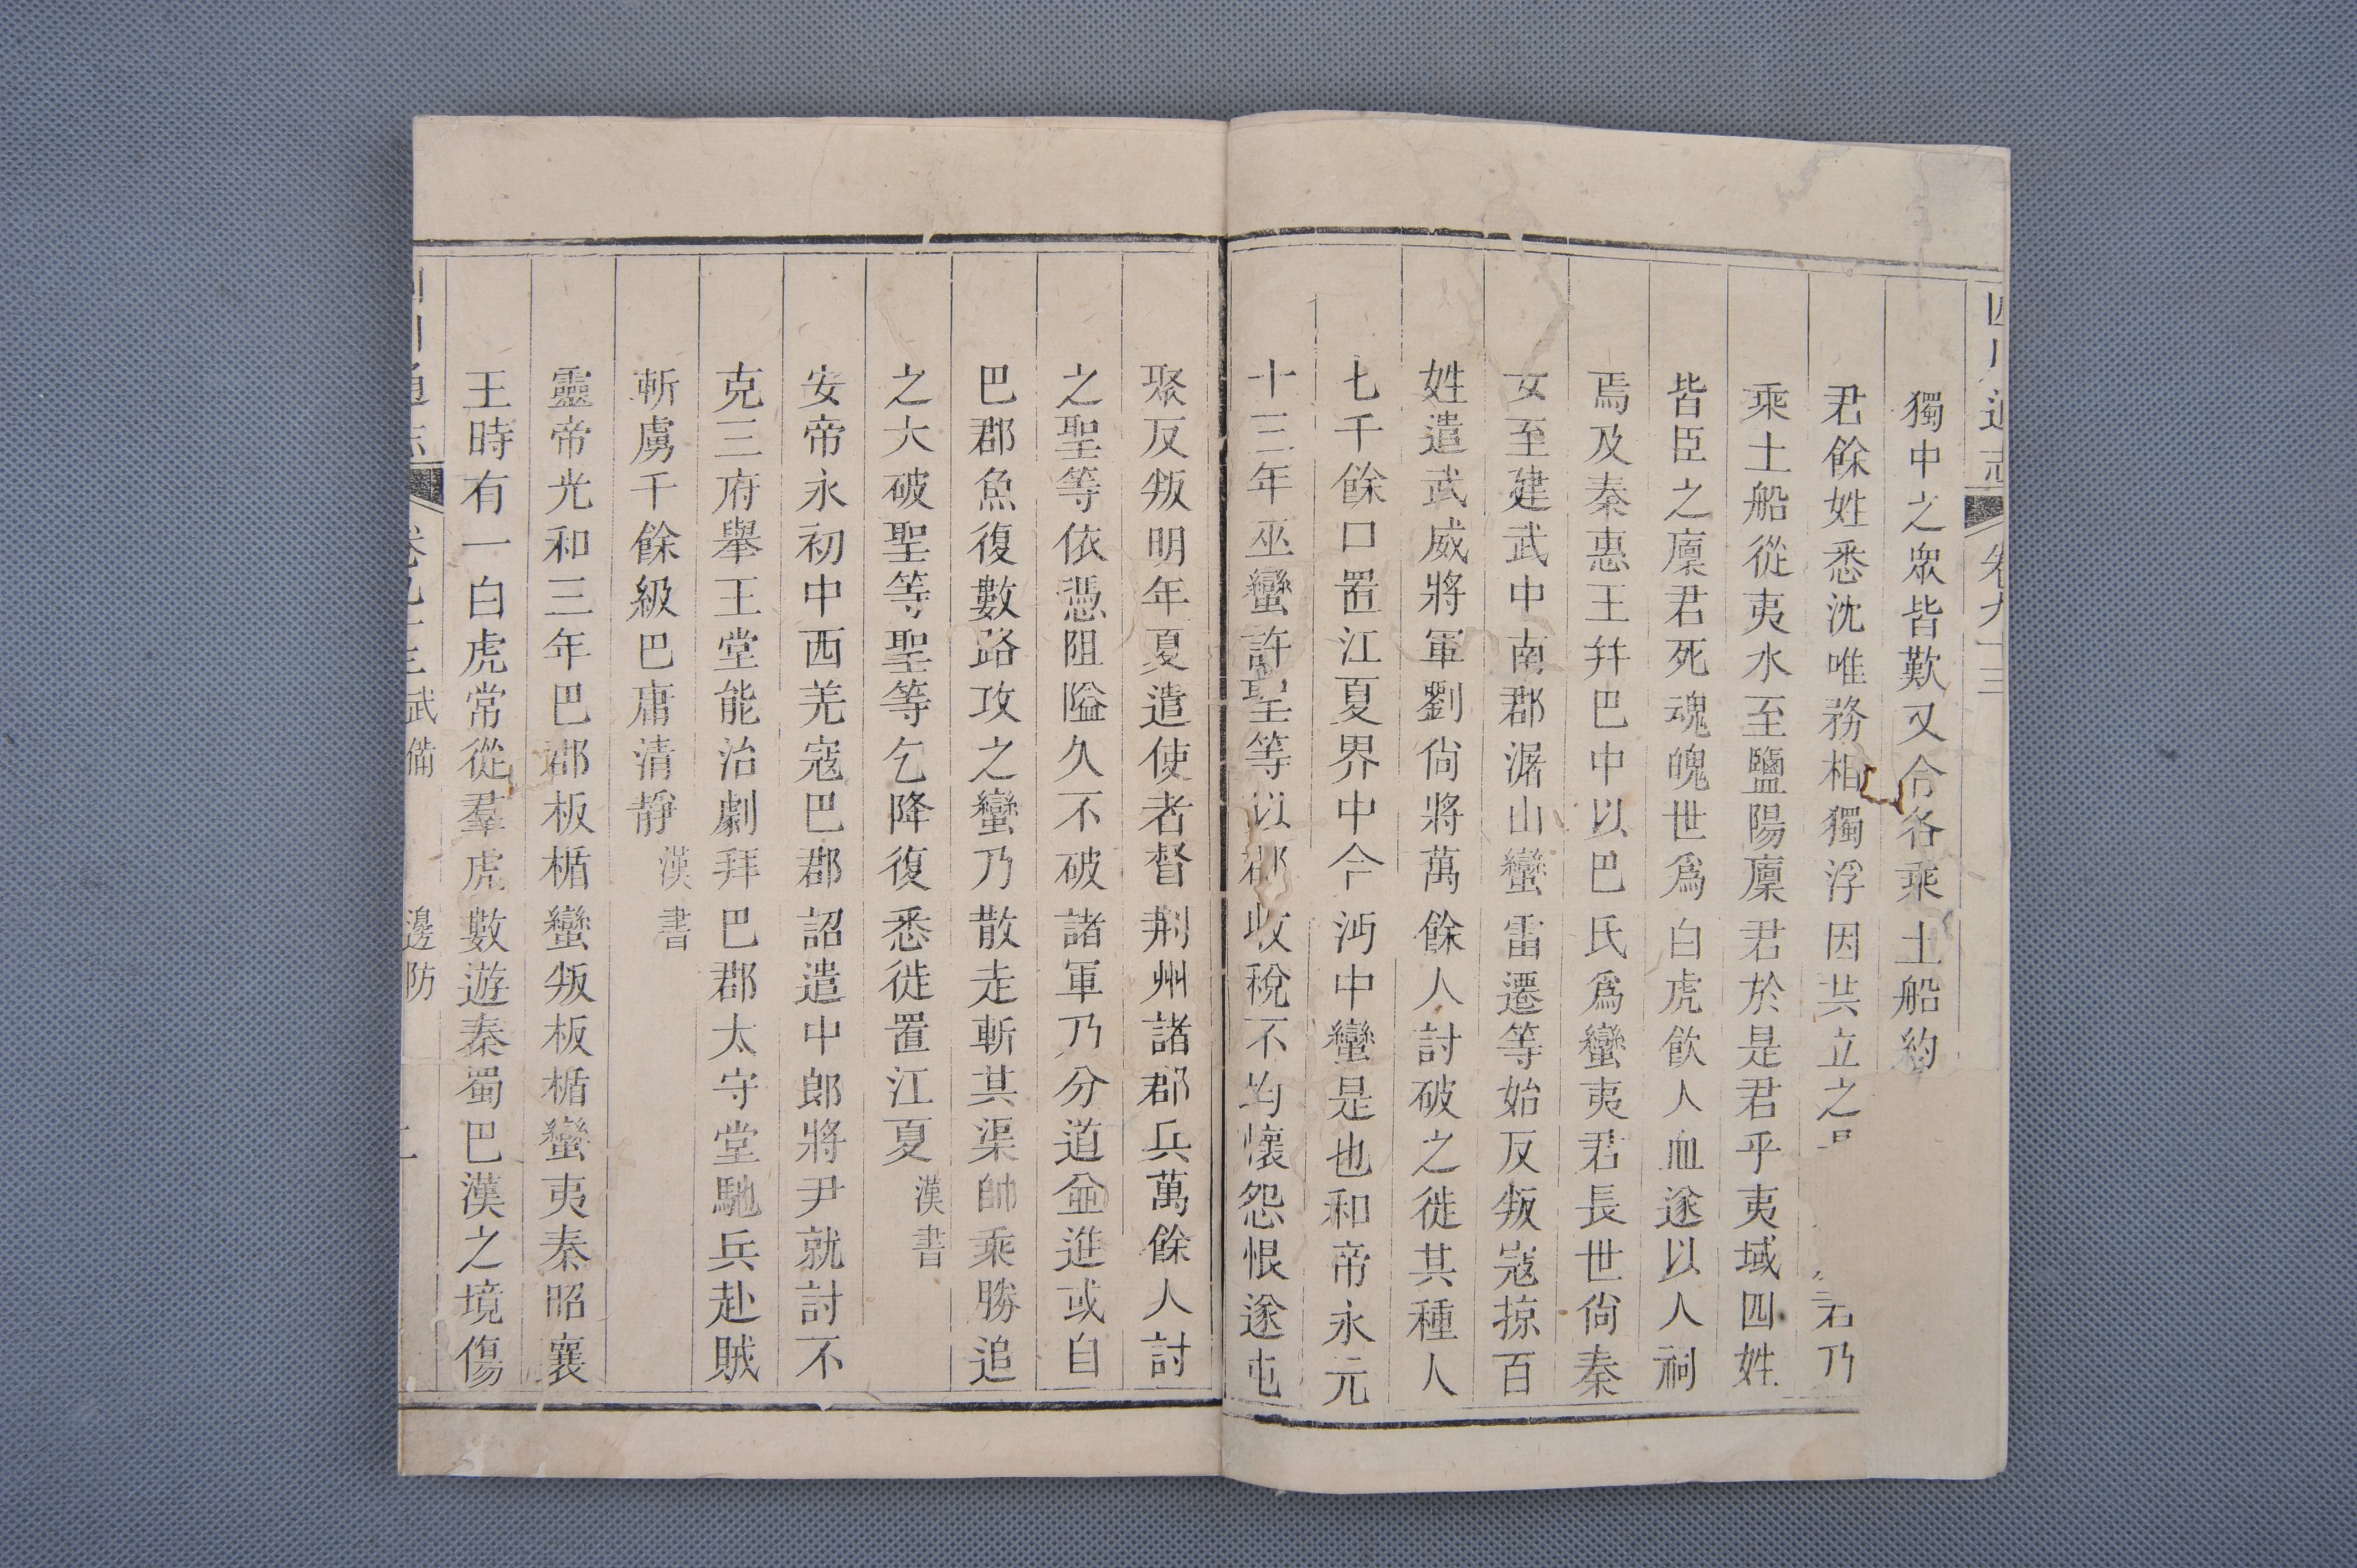 四川通志 卷九十三
獨中之眾皆歎又令各乘土船約
君餘姓悉沈唯務相獨浮因共立之 君乃
乘土船從夷水至鹽陽廩君於是君乎夷城四姓
皆臣之廩君死魂魄世爲白虎飲人血遂以人祠
焉及秦惠王并巴中以巴氏爲蠻夷君長世尙秦
女至建武中南郡潺山蠻雷遷等始反叛寇掠百
姓遣武威將軍劉尙將萬餘人討破之徙其種人
七千餘口置江夏界中今沔中蠻是也和帝永元
十三年巫蠻許聖等以郡收稅不均懷怨恨遂屯
聚反叛明年夏遣使者督荆州諸郡兵萬餘人討
之聖等依憑阻隘久不破諸軍乃分道並進或自
巴郡魚復數路攻之蠻乃散走斬其渠帥乘勝追
之大破聖等聖等乞降復悉徙置江夏漢書
安帝永初中西羌寇巴郡詔遣中郎將尹就討不
克三府舉王堂能治劇拜巴郡太守堂馳兵赴賊
斬虜千餘級巴庸清靜漢書
靈帝光和三年巴郡板楯蠻叛板楯蠻夷秦昭襄
王時有一白虎常從羣虎數遊秦蜀巴漢之境傷
川通志 卷九十三 武備 邊防